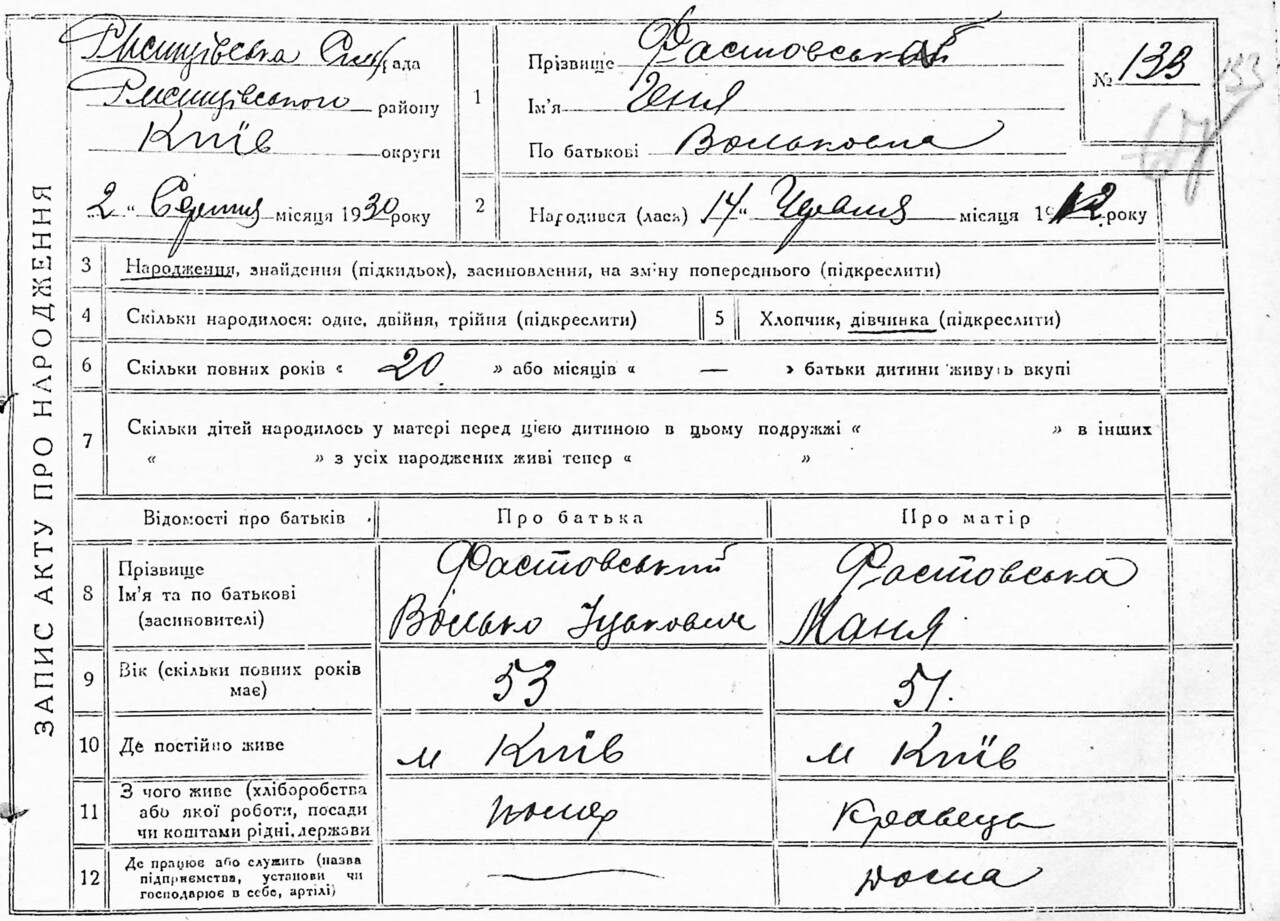 ЗАПИС АКТУ ПРО НАРОДЖЕННЯ
Ржищівська Сільрада
Ржищівського району
Київ округи
2 " Серпня місяця 1930 року
1
Прізвище Фастовська
Ім'я Геня
По батькові Вольковна
№ 133
133
67
2
Народився (лася) 14 " Червня місяця 1912 року
3 Народження, знайдення (підкидьок), засиновлення, на зміну попереднього (підкреслити)
4 Скільки народилося: одне, двійня, трійня (підкреслити)
5 Хлопчик, дівчинка (підкреслити)
6 Скільки повних років « 20 » або місяців « — » батьки дитини живуть вкупі
7 Скільки дітей народилось у матері перед цією дитиною в цьому подружжі « » в інших
« » з усіх народжених живі тепер « »
Відомості про батьків
Про батька
Про матір
8 Прізвище
Ім'я та по батькові
(засиновителі)
Фастовський
Волько Іцькович
Фастовська
Маня
9 Вік (скільки повних років
має)
53
51.
10 Де постійно живе
м Київ
м Київ
11 З чого живе (хліборобства
або якої роботи, посади
чи коштами рідні, держави
Кравець
12 Де працює або служить (назва
підприємства, установи чи
господарює в себе, артілі)
—
дома